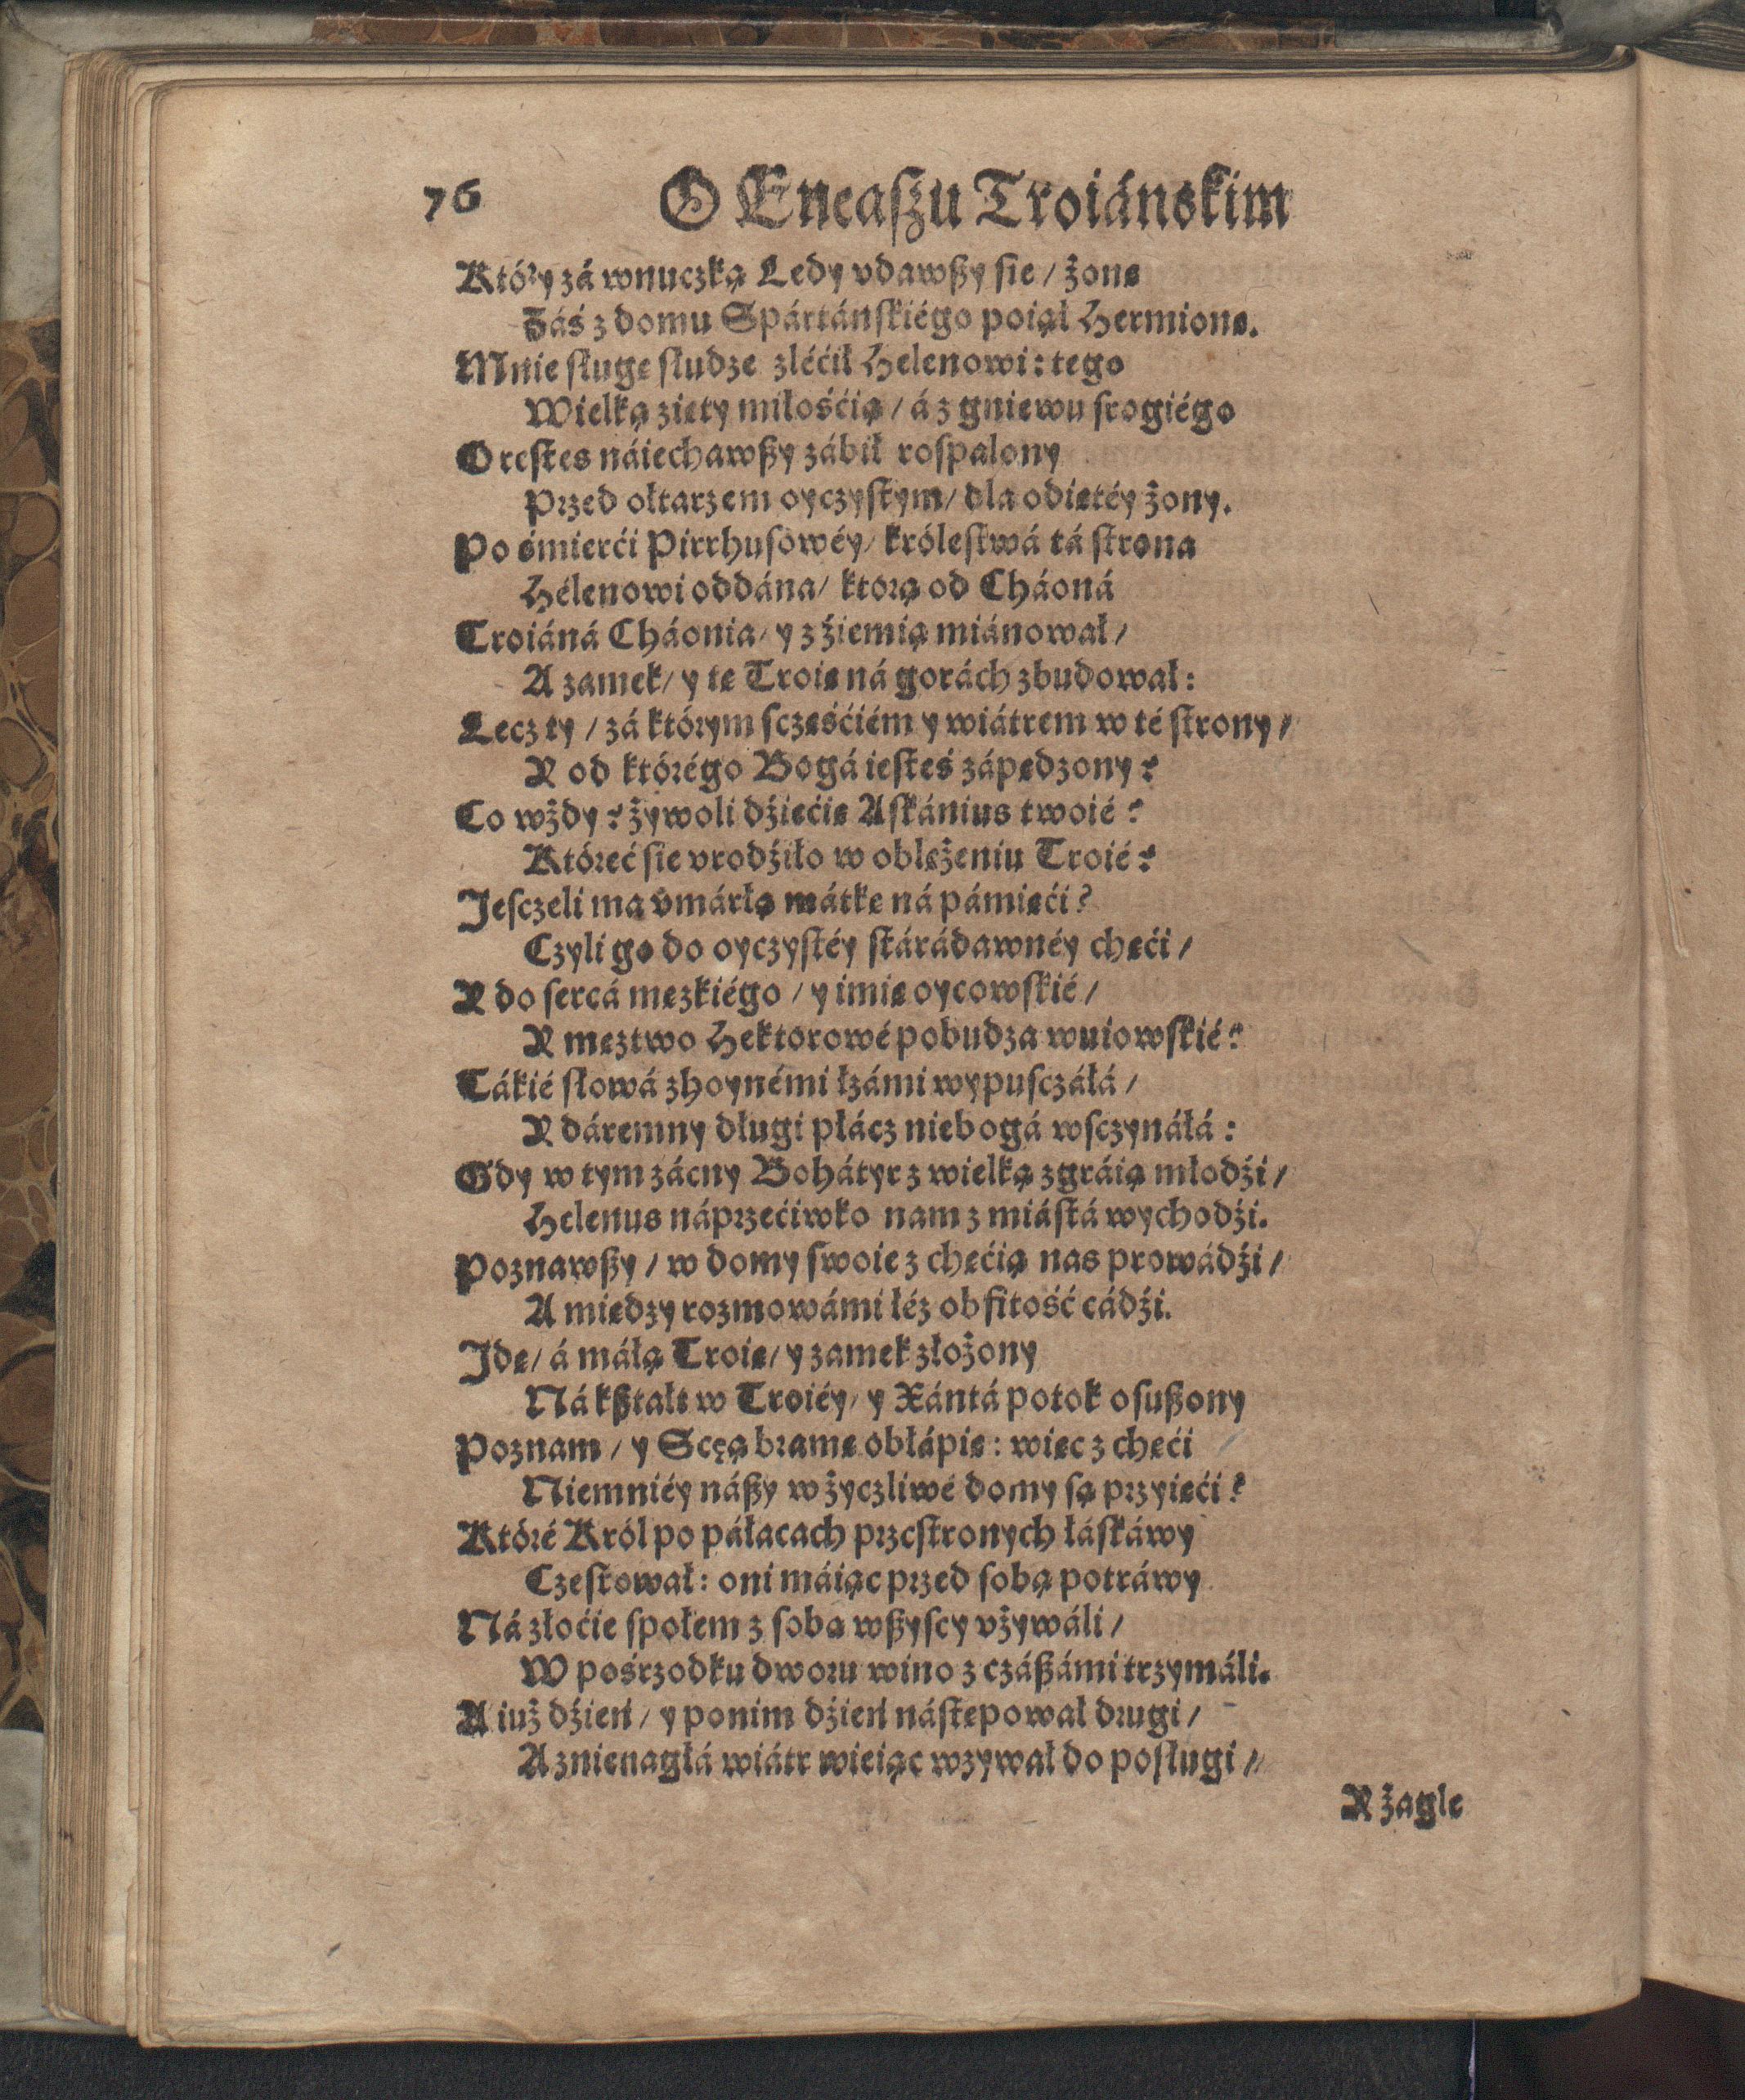 76 O Eneaſzu Troiánskim
Który zá wnuczką Ledy vdawßy ſie / żonę
Záś z domu Spártáńſkiégo poiął Hermionę.
Mnie ſługę ſłudze zléćił Helenowi: tego
Wielką zięty miłośćią / á z gniewu ſrogiégo
Oreſtes náiechawßy zábił roſpalony
Przed ołtarzem oyczyſtym / dla odiętéy żony.
Po śmierći Pirrhuſowéy / króleſtwá tá ſtrona
Hélenowi oddána / ktorą od Cháoná
Troiáná Cháonia / y z źiemią miánował /
A zamek / y tę Troię ná gorách zbudował:
Lecz ty / zá którym ſczęśćiém y wiátrem w té ſtrony /
Y od którégo Bogá ieſteś zápędzony?
Co wżdy? żywoli dźiećię Aſkánius twoié?
Któreć ſie vrodźiło w oblężeniu Troié?
Jeſczeli ma vmárłą mátkę ná pámięći?
Czyli go do oyczyſtéy ſtárádawnéy chęći /
Y do ſercá męzkiégo / y imię oycowſkié /
Y męztwo Hektorowé pobudza wuiowſkié?
Tákié ſłowá zhoynémi łzámi wypuſczáłá /
Y dáremny długi płácz niebogá wſczynáłá:
Gdy w tym zácny Bohátyr z wielką zgráią młodźi /
Helenus náprzećiwko nam z miáſtá wychodźi.
Poznawßy / w domy ſwoie z chęćią nas prowádźi /
A między rozmowámi łéz obfitość cádźi.
Jdę / á máłą Troię / y zamek złożony
Ná kßtałt w Troiéy / y Xántá potok oſußony
Poznam / y Scęą bramę obłápię: więc z chęći
Niemniéy náßy w życzliwé domy ſą przyięći?
Któré Król po páłacach przeſtronych łáſkáwy
Częſtował: oni máiąc przed ſobą potráwy
Ná złoćie ſpołem z ſobą wßyſcy vżywáli /
W pośrzodku dworu wino z czáßámi trzymáli.
A iuż dźień / y ponim dźień náſtępował drugi /
A znienagłá wiátr wieiąc wzywał do poſługi /
Y żagle